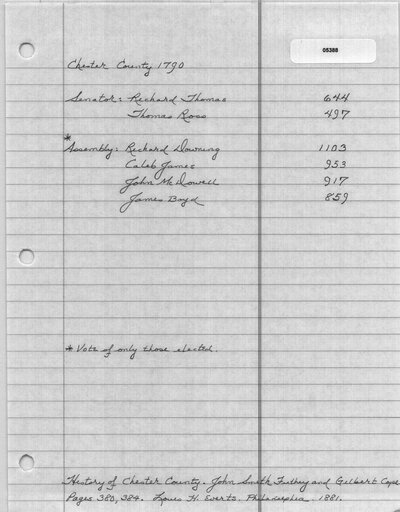 05388
Chester County 1790
Senator: Richard Thomas 644
Thomas Ross 497
*
Assembly: Richard Downing 1103
Caleb James 953
John McDowell 917
James Boyd 859
* Vote of only those elected.
History of Chester County. John Smith Futhey and Gilbert Cope
Pages 380, 384. Louis H. Everts. Philadelphia. 1881.